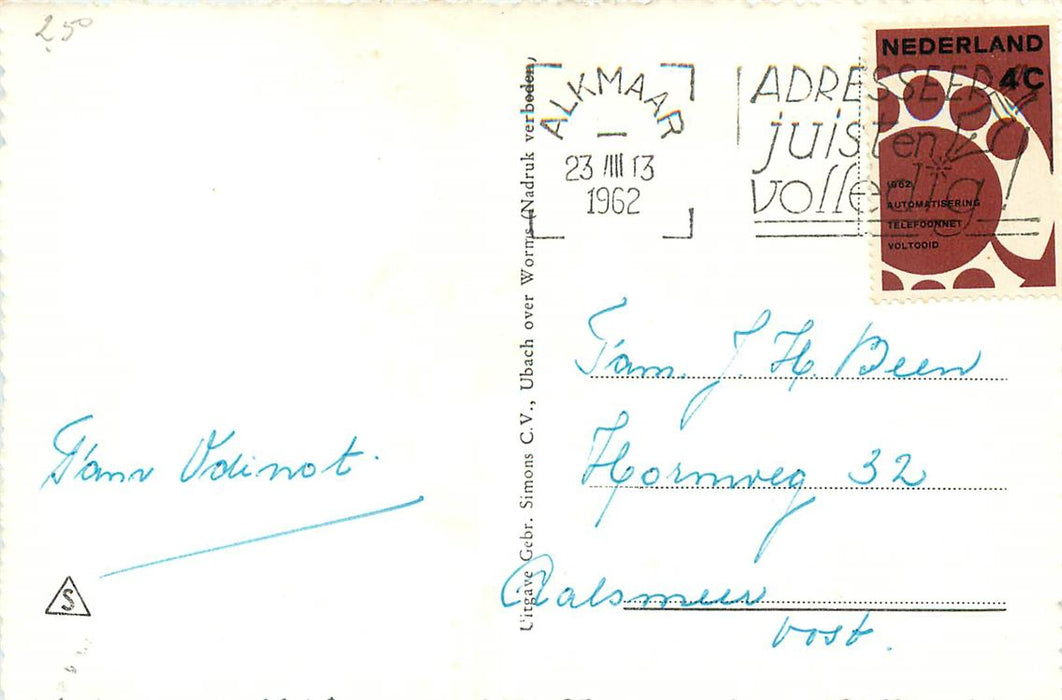 250
NEDERLAND
4C
1962
AUTOMATISERING
TELEFOONNET
VOLTOOID
ALKMAAR
23 IIII 13
1962
ADRESSEER
juist en
volledig!
Uitgave Gebr. Simons C.V., Ubach over Worms (Nadruk verboden)
Fam. J. H. Been
Hornweg 32
Aalsmeer
Oost.
Fam Odinot.
S